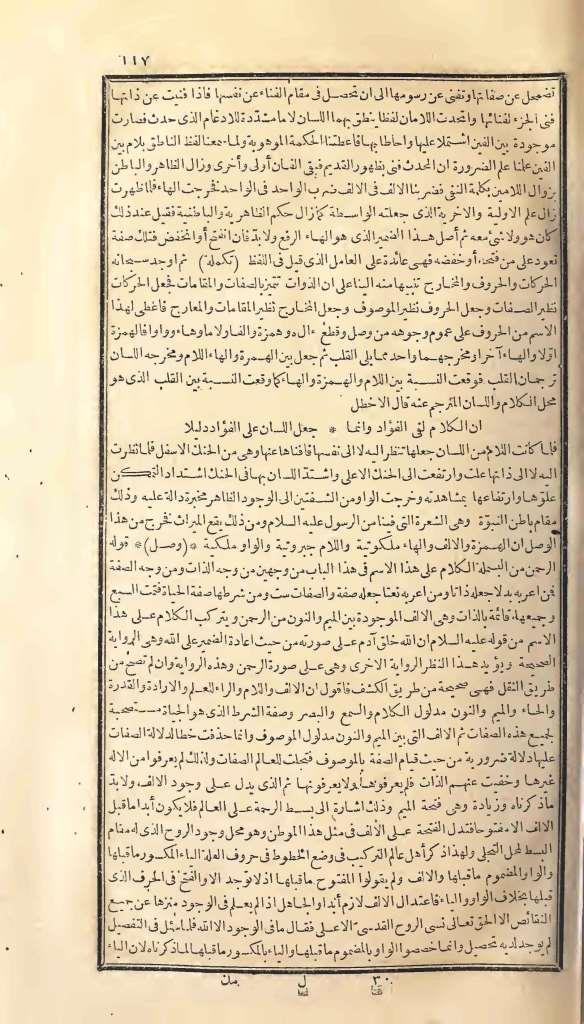 ١١٧
تضمحل عن صفاتها وتفنى عن رسومها الى ان تحصل فى مقام الفناء عن نفسها فاذا فنيت عن ذاتها
فنى الجزء لفنائها واتحدت اللامان لفظا ينطق بهما اللسان لاما مشددة للادغام الذى حدث فصارت
موجودة بين الفين اشتملا عليها وأحاطا بها فأعطتنا الحكمة الموهوبة لما سمعنا لفظ الناطق بلا بين
الفين علمنا علم الضرورة ان المحدث فنى بظهور القديم فبقى الفان أولى وأخرى وزال الظاهر والباطن
بزوال اللامين بكلمة النفى فضربنا الالف فى الالف ضرب الواحد فى الواحد فخرجت الهاء فلما ظهرت
زال حكم الاولية والآخرية الذى جعلته الواسطة كما زال حكم الظاهرية والباطنية فقيل عند ذلك
كان هو ولا شئ معه ثم أصل هذا الضمير الذى هو الهاء الرفع ولا بد فان انفتح أو انخفض فتلك صفة
تعود على من فتحه أو خفضه فهى عائدة على العامل الذى قبل فى اللفظ (تكملة) ثم أوجد سبحانه
الحركات والحروف والمخارج تنبيها منه الينا على ان الذوات تتميز بالصفات والمقامات فجعل الحركات
نظير الصفات وجعل الحروف نظير الموصوف وجعل المخارج نظير المقامات والمعارج فاعطى لهذا
الاسم من الحروف على عموم وجوهه من وصل وقطع ء ا ل ه و همزة والفا ولاما وهاء وواوا فالهمزة
اولا والهاء آخرا ومخرجهما واحد مما يلى القلب ثم جعل بين الهمزة والهاء اللام ومخرجه اللسان
ترجمان القلب فوقعت النسبة بين اللام والهمزة والهاء كما وقعت النسبة بين القلب الذى هو
محل الكلام واللسان المترجم عنه قال الاخطل
ان الكلام لفى الفؤاد وانما * جعل اللسان على الفؤاد دليلا
فلما كانت اللام من اللسان جعلها تنظر اليه لا الى نفسها فافناها عنها وهى من الحنك الاسفل فلما نظرت
اليه لا الى ذاتها علت وارتفعت الى الحنك الاعلى واشتد اللسان بها فى الحنك اشتداد التمكن
علوها وارتفاعها بمشاهدته وخرجت الواو من الشفتين الى الوجود الظاهر مخبرة دالة عليه وذلك
مقام باطن النبوة وهى الشعرة التى فينا من الرسول عليه السلام ومن ذلك يقع الميراث فخرج من هذا
الوصل ان الهمزة والالف والهاء ملكوتية واللام جبروتية والواو ملكية * (وصل) * قوله
الرحمن من البسملة الكلام على هذا الاسم فى هذا الباب من وجهين من وجه الذات ومن وجه الصفة
فمن اعربه بدلا جعله ذاتا ومن اعربه نعتا جعله صفة والصفات ست ومن شرطها صفة الحياة فتمت السبع
وجميعها قائمة بالذات وهى الالف الموجودة بين الميم والنون من الرحمن ويتركب الكلام على هذا
الاسم من قوله عليه السلام ان الله خلق آدم على صورته من حيث اعادة الضمير على الله وهى الرواية
الصحيحة ويؤيد هذا النظر الرواية الاخرى وهى على صورة الرحمن وهذه الرواية وان لم تصح من
طريق النقل فهى صحيحة من طريق الكشف فاقول ان الالف واللام والراء للعلم والارادة والقدرة
والحاء والميم والنون مدلول الكلام والسمع والبصر وصفة الشرط الذى هو الحياة مستصحبة
لجميع هذه الصفات ثم الالف التى بين الميم والنون مدلول الموصوف وانما حذفت خطا لدلالة الصفات
عليها دلالة ضرورية من حيث قيام الصفة بالموصوف فتجلت للعالم الصفات ولذلك لم يعرفوا من الاله
غيرها وخفيت عنهم الذات فلم يعرفوها ولا يعرفونها ثم الذى يدل على وجود الالف ولا بد
ما ذكرناه وزيادة وهى فتحة الميم وذلك اشارة الى بسط الرحمة على العالم فلا يكون أبدا ما قبل
الالف الا مفتوحا فتدل الفتحة على الالف فى مثل هذا الموطن وهو محل وجود الروح الذى له مقام
البسط لمحل التجلى ولهذا ذكر أهل عالم التركيب فى وضع الخطوط فى حروف العلة الياء المكسور ما قبلها
والواو المضموم ما قبلها والالف ولم يقولوا المفتوح ما قبلها اذ لا توجد الا والفتح فى الحرف الذى
قبلها بخلاف الواو والياء فاعتدال الالف لازم أبدا والجاهل اذا لم يعلم فى الوجود منزها عن جميع
النقائص الا الحق تعالى نسى الروح القدسى الاعلى فقال ما فى الوجود الا الله فلما سئل فى التفصيل
لم يوجد لديه تحصيل وانما خصصوا الواو بالمضموم ما قبلها والياء بالمكسور ما قبلها لما ذكرناه لان الياء
٣٠ ل من